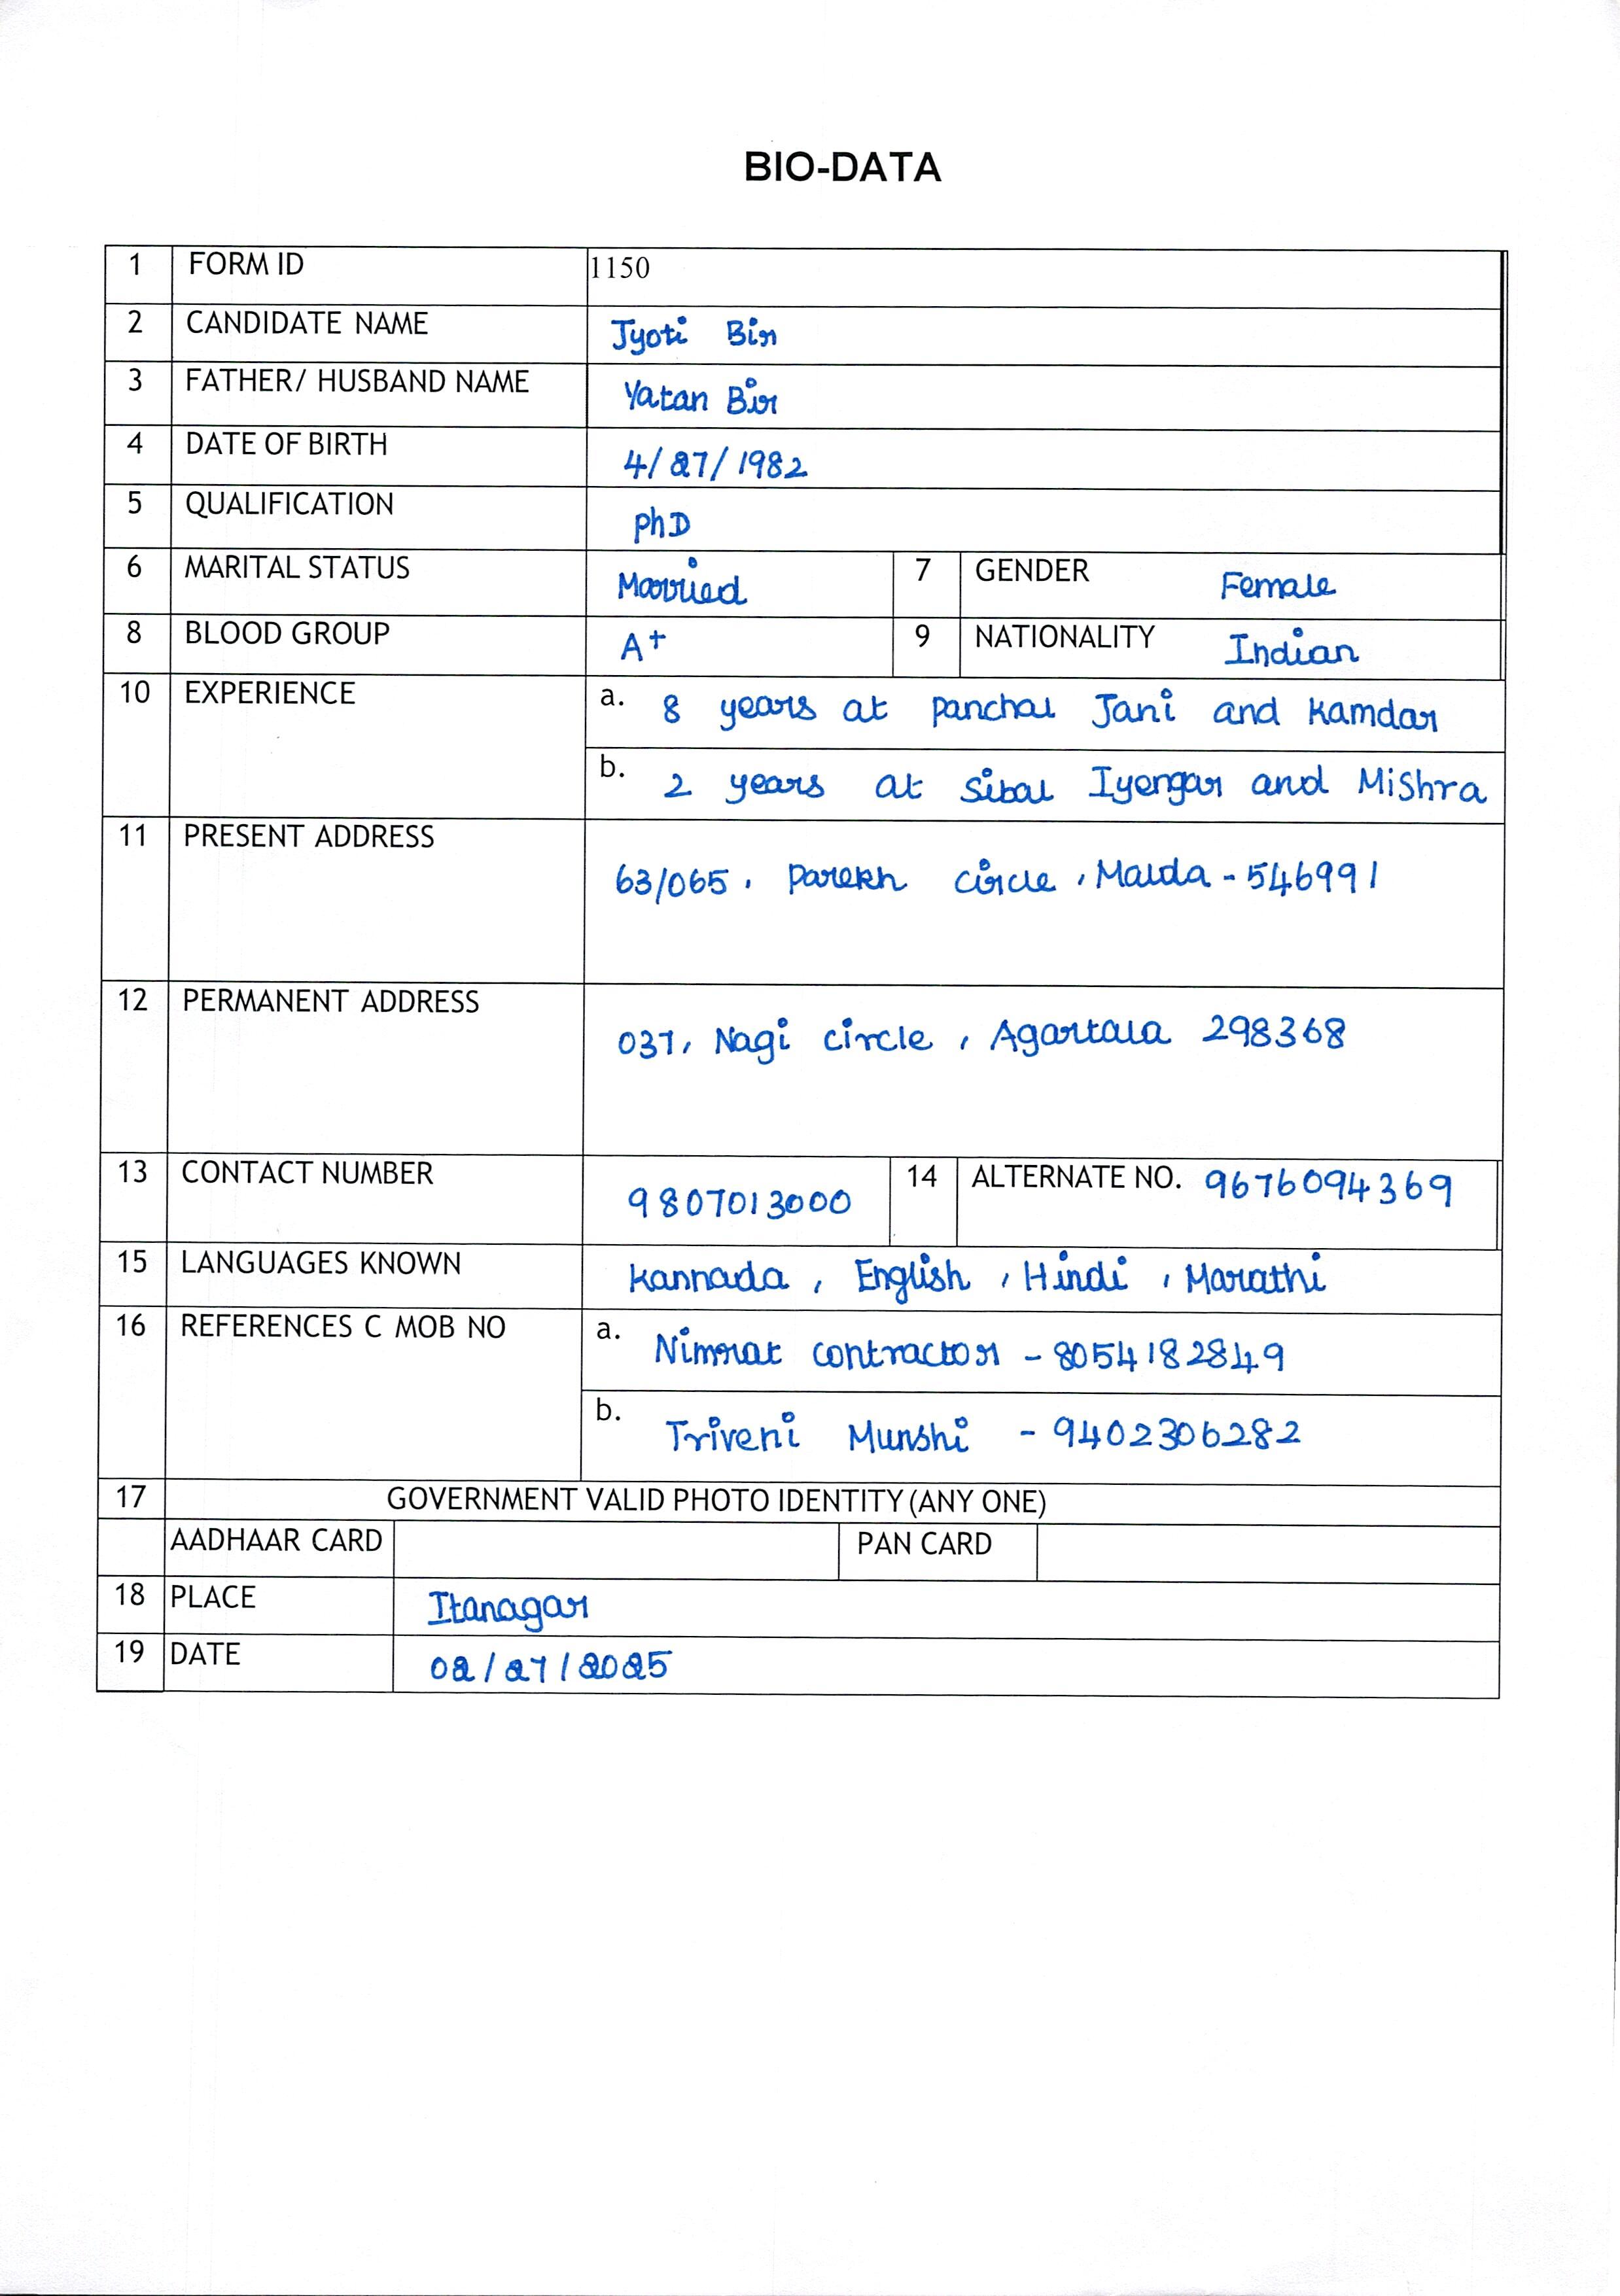 BIO-DATA
1 FORM ID 1150
2 CANDIDATE NAME Jyoti Bir
3 FATHER/ HUSBAND NAME Yatan Bir
4 DATE OF BIRTH 4/27/1982
5 QUALIFICATION PhD
6 MARITAL STATUS Married 7 GENDER Female
8 BLOOD GROUP A+ 9 NATIONALITY Indian
10 EXPERIENCE a. 8 years at Panchal Jani and Kamdar
b. 2 years at Sibal Iyengar and Mishra
11 PRESENT ADDRESS
63/065, Parekh circle, Malda - 546991
12 PERMANENT ADDRESS
037, Nagi circle, Agartala 298368
13 CONTACT NUMBER 9807013000 14 ALTERNATE NO. 9676094369
15 LANGUAGES KNOWN Kannada, English, Hindi, Marathi
16 REFERENCES C MOB NO a. Nimrat contractor - 8054182849
b. Triveni Munshi - 9402306282
17 GOVERNMENT VALID PHOTO IDENTITY (ANY ONE)
AADHAAR CARD PAN CARD
18 PLACE Itanagar
19 DATE 02/27/2025